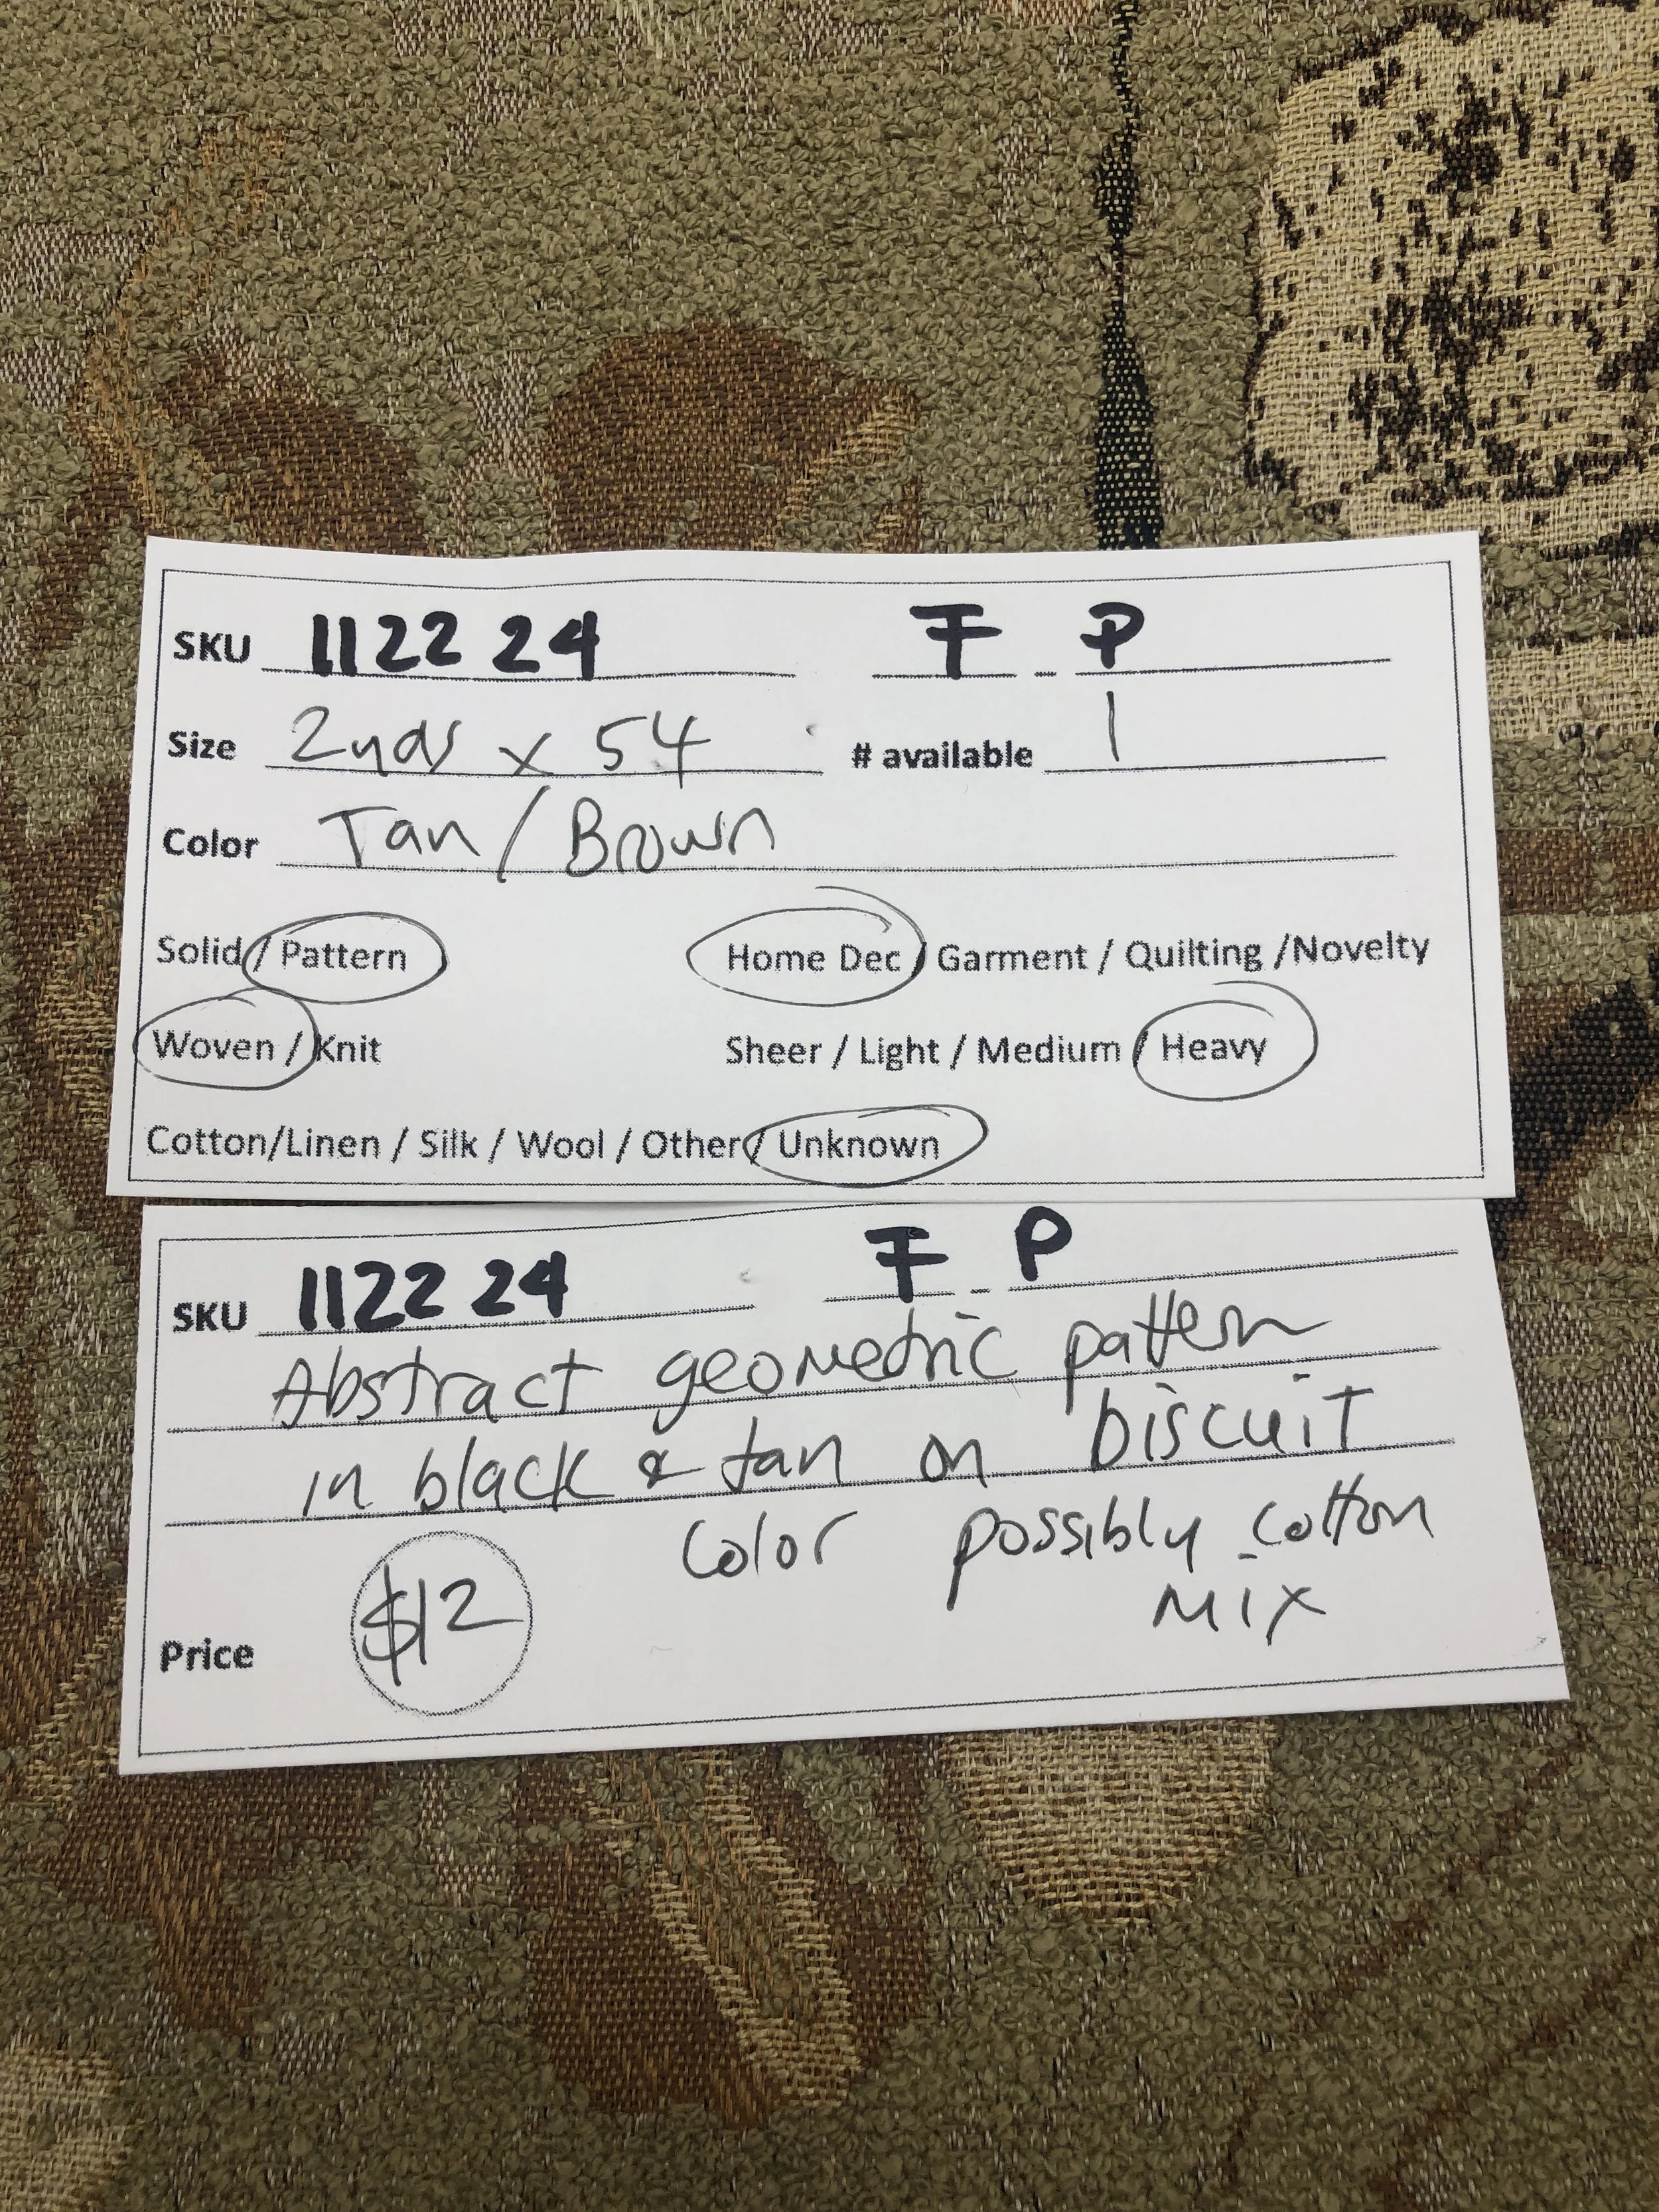 SKU 112224 F - P
Size 2yds x 54 # available 1
Color Tan / Brown
Solid / Pattern Home Dec / Garment / Quilting /Novelty
Woven / Knit Sheer / Light / Medium / Heavy
Cotton/Linen / Silk / Wool / Other / Unknown
SKU 112224 F - P
Abstract geometric pattern
in black & tan on biscuit
color possibly cotton
mix
Price $12